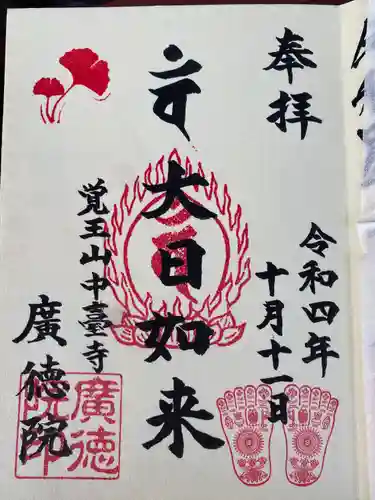 奉拝
令和四年
十月十一日
大日如来
覚王山中臺寺
廣徳院
廣徳
院印